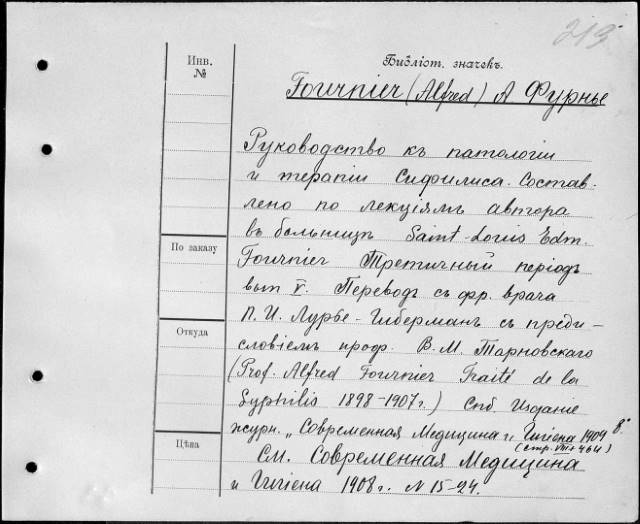 213
Инв.
№
Библіот. значекъ.
Fournier (Alfred) А Фурнье
Руководство къ патологіи
и терапіи Сифилиса. Состав-
лено по лекціямъ автора
въ больницѣ Saint-Louis Edm.
По заказу
Fournier Третичный періодъ
вып V. Переводъ съ фр. врача
П. И. Лурье-Гиберманъ съ преди-
Откуда
словіемъ проф. В. М. Тарновскаго
(Prof. Alfred Fournier Traité de la
Syphilis 1898-1907 г.) Спб. Изданіе
журн. „Современная Медицина и Гигіена 1909 8°
Цѣна
(стр. VIII+464)
См. Современная Медицина
и Гигіена 1908 г. N 15-24.